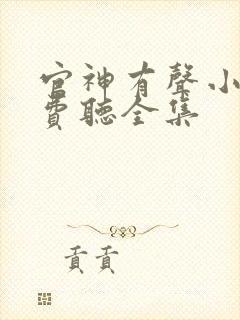 官神有聲小
費聽全集
貢貢